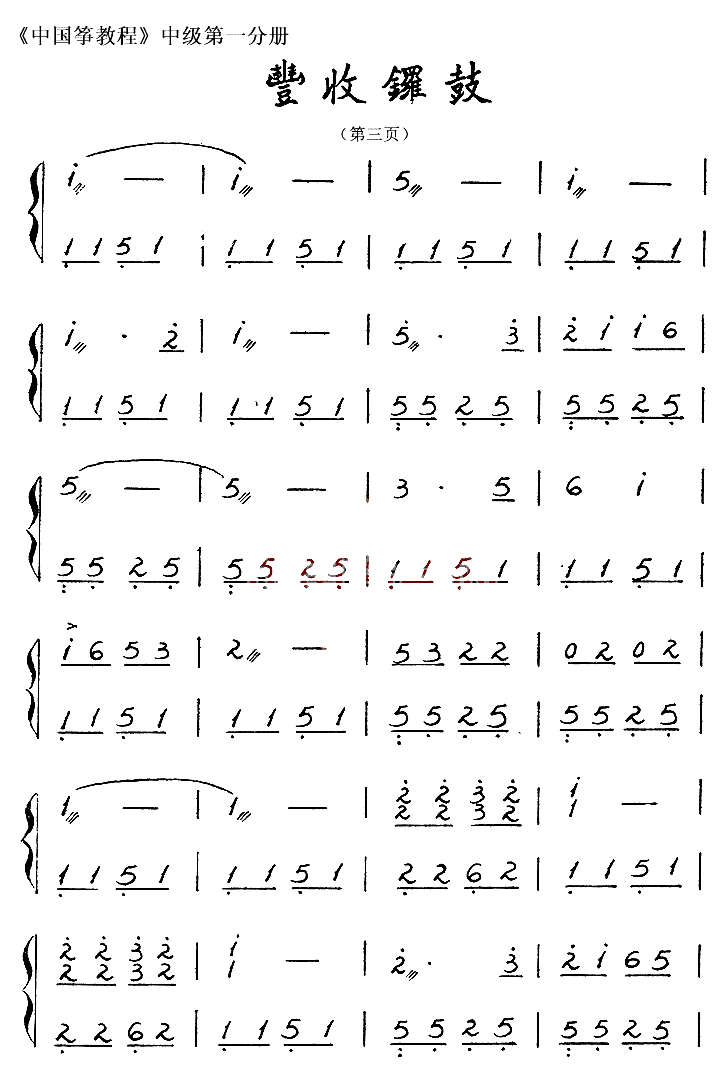 《中国筝教程》中级第一分册
豐收鑼鼓
（第三页）
i - | i - | 5 - | i - |
1 1 5 1 | 1 1 5 1 | 1 1 5 1 | 1 1 5 1 |
i · 2 | i - | 5 · 3 | 2 i i 6 |
1 1 5 1 | 1 1 5 1 | 5 5 2 5 | 5 5 2 5 |
5 - | 5 - | 3 · 5 | 6 i |
5 5 2 5 | 5 5 2 5 | 1 1 5 1 | 1 1 5 1 |
i 6 5 3 | 2 - | 5 3 2 2 | 0 2 0 2 |
1 1 5 1 | 1 1 5 1 | 5 5 2 5 | 5 5 2 5 |
1 - | 1 - | 2 2 3 2 | i - |
2 2 3 2 1
1 1 5 1 | 1 1 5 1 | 2 2 6 2 | 1 1 5 1 |
2 2 3 2 | i - | 2 · 3 | 2 i 6 5 |
2 2 3 2 1
2 2 6 2 | 1 1 5 1 | 5 5 2 5 | 5 5 2 5 |